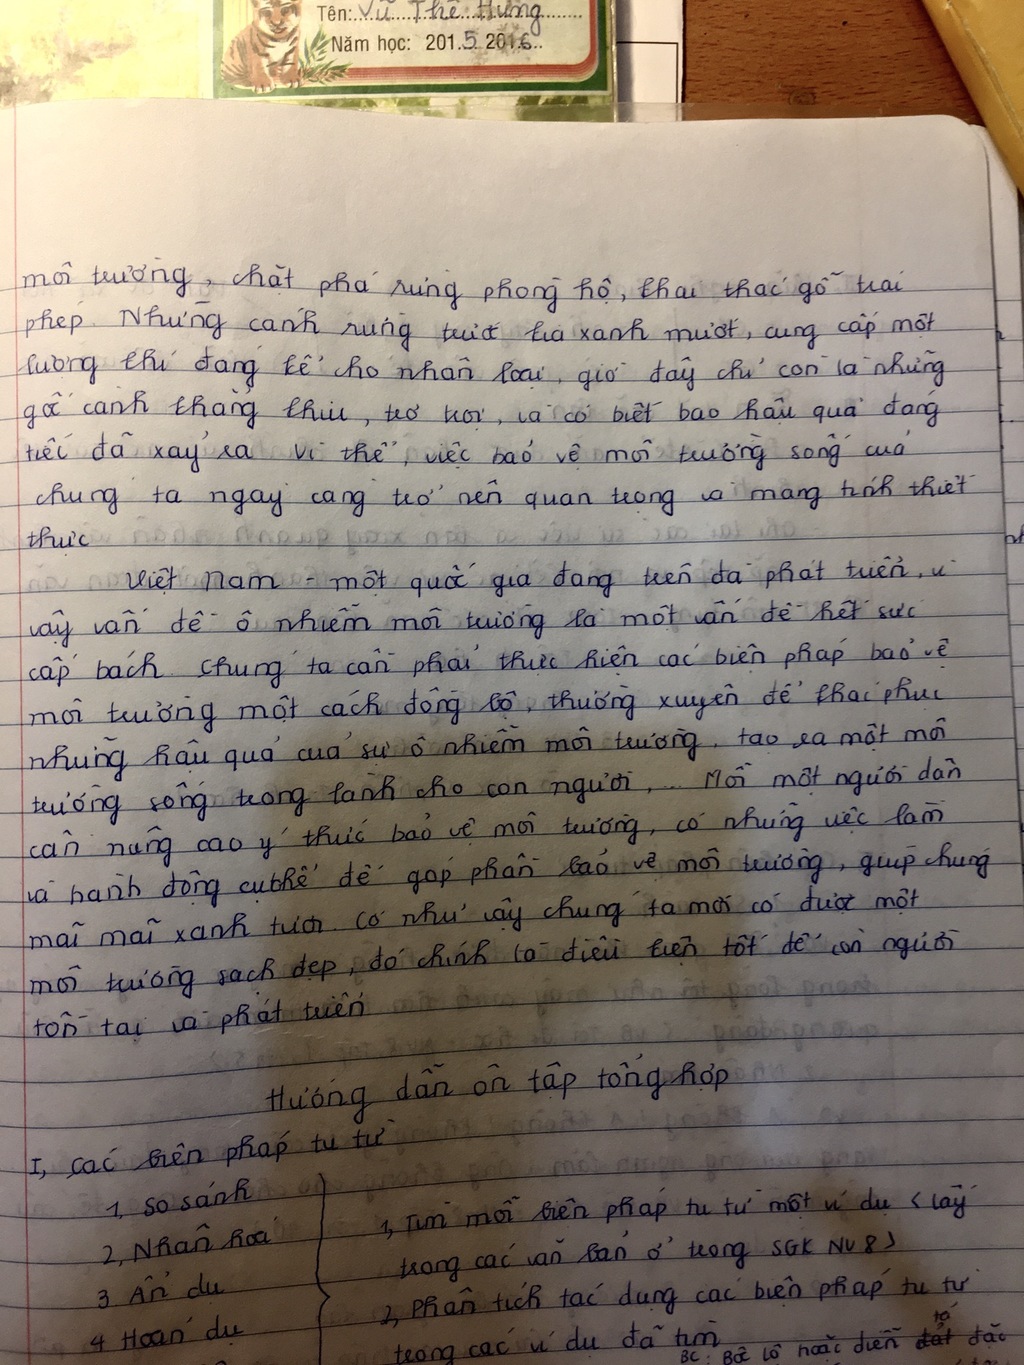 Tên: Vũ Thế Hưng
Năm học: 2015 2016
môi trường, chặt phá rừng phòng hộ, khai thác gỗ trái
phép. Những cánh rừng trước kia xanh mướt, cung cấp một
lượng khí đáng kể cho nhân loại, giờ đây chỉ còn là những
gốc cành khẳng khiu, trơ trọi, và có biết bao hậu quả đáng
tiếc đã xảy ra. Vì thế, việc bảo vệ môi trường sống của
chúng ta ngày càng trở nên quan trọng và mang tính thiết
thực
Việt Nam - một quốc gia đang trên đà phát triển, vì
vậy vấn đề ô nhiễm môi trường là một vấn đề hết sức
cấp bách. Chúng ta cần phải thực hiện các biện pháp bảo vệ
môi trường một cách đồng bộ, thường xuyên để khai phục
những hậu quả của sự ô nhiễm môi trường, tạo ra một môi
trường sống trong lành cho con người,... Mỗi một người dân
cần nâng cao ý thức bảo vệ môi trường, có những việc làm
và hành động cụ thể để góp phần bảo vệ môi trường, giúp chúng
mãi mãi xanh tươi. Có như vậy chúng ta mới có được một
môi trường sạch đẹp, đó chính là điều kiện tốt để con người
tồn tại và phát triển
Hướng dẫn ôn tập tổng hợp
I, Các biện pháp tu từ
1, So sánh
2, Nhân hoá
3 Ẩn dụ
4 Hoán dụ
1, Tìm mỗi biện pháp tu từ một ví dụ (lấy
trong các văn bản ở trong SGK NV8)
2, Phân tích tác dụng các biện pháp tu từ
trong các ví dụ đã tìm
BC: Bộc lộ hoặc diễn tả đặc